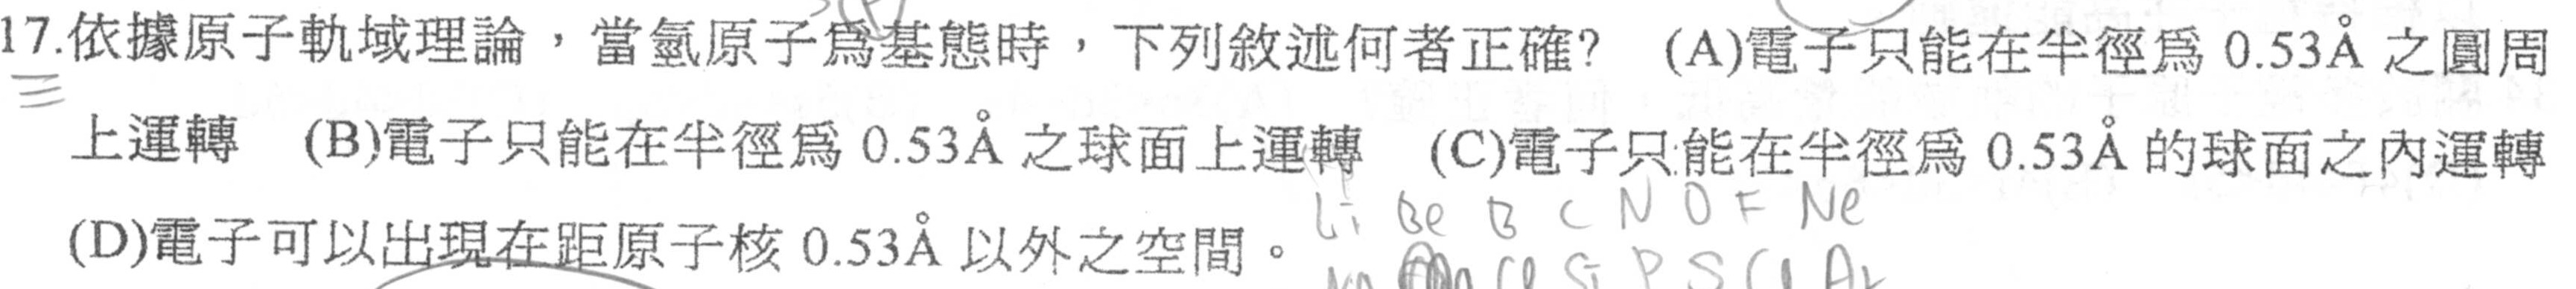 17.依據原子軌域理論，當氫原子爲基態時，下列敘述何者正確? (A)電子只能在半徑爲 0.53Å 之圓周
上運轉 (B)電子只能在半徑爲 0.53Å 之球面上運轉 (C)電子只能在半徑爲 0.53Å 的球面之內運轉
Li Be B C N O F Ne
(D)電子可以出現在距原子核 0.53Å 以外之空間。
Si P S Cl Ar